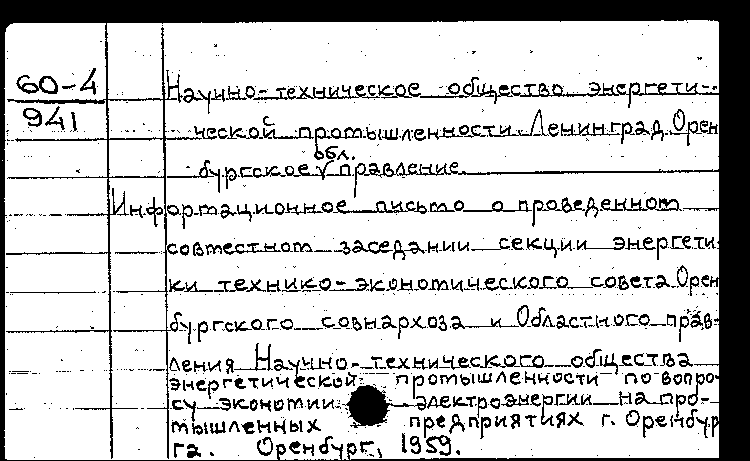 60-4
941
Научно-техническое общество энергети-
ческой промышленности. Ленинград. Орен
обл.
бургское V правление.
Информационное письмо о проведенном
совместном заседании секции энергети-
ки технико-экономического совета Орен
бургского совнархоза и Областного прав-
ления Научно-технического общества
энергетической промышленности по вопро-
су экономии электроэнергии на про-
мышленных предприятиях г. Оренбур
га. Оренбург, 1959.